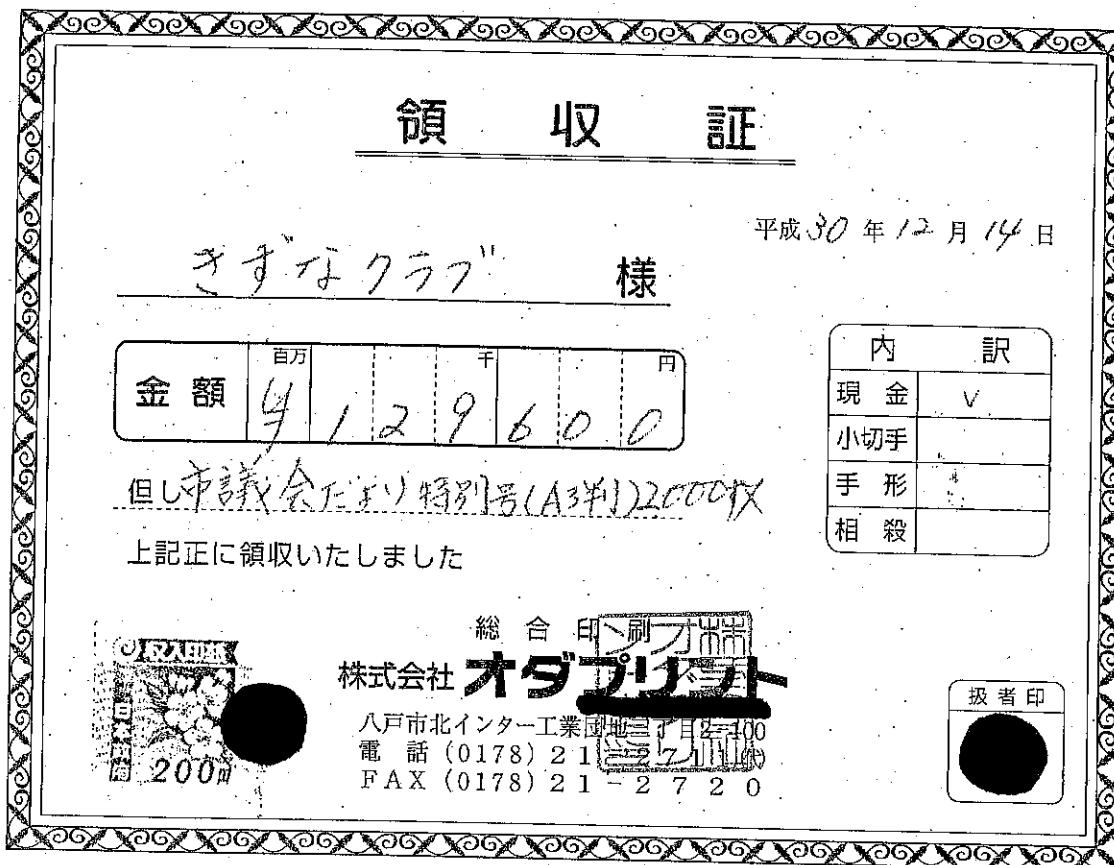 領収証
平成30年12月14日
きずなクラブ 様
金額 百万 千 円
¥129600
内訳
現金 ✓
小切手
手形
相殺
但し市議会だより特別号(A3判)2000枚
上記正に領収いたしました
収入印紙
日本政府
200円
総合印刷
株式会社オダプリント
八戸市北インター工業団地三丁目2-100
電話(0178)21-271
FAX(0178)21-2720
扱者印